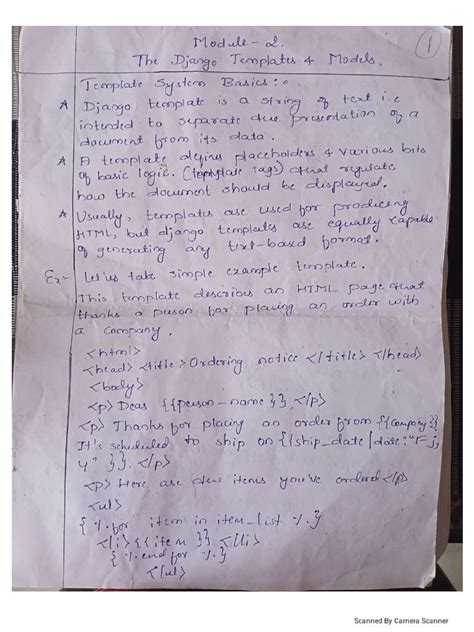 Module - 2.
1
The Django Templates & Models.
Template System Basics : -
* Django template is a string of text i.e
intended to separate the presentation of a
document from its data.
* A template defines placeholders & various bits
of basic logic. (template tags) that regulate
how the document should be displayed.
* Usually, templates are used for producing
HTML, but django templates are equally capable
of generating any text-based format.
Ex:- Let us take simple example template.
This template describes an HTML page that
thanks a person for placing an order with
a company.
<html>
<head> <title> Ordering notice </title> </head>
<body>
<p> Dear {{person_name}}, </p>
<p> Thanks for placing an order from {{company}}
It's scheduled to ship on {{ship_date|date:"F j,
Y" }}. </p>
<p> Here are the items you've ordered </p>
<ul>
{ %.for item in item_list %.}
<li>{{item }} </li>
{ %.end for %.}
</ul>
Scanned By Camera Scanner